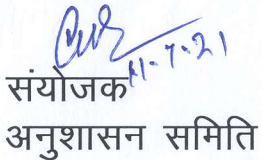 11.7.21
संयोजक
अनुशासन समिति